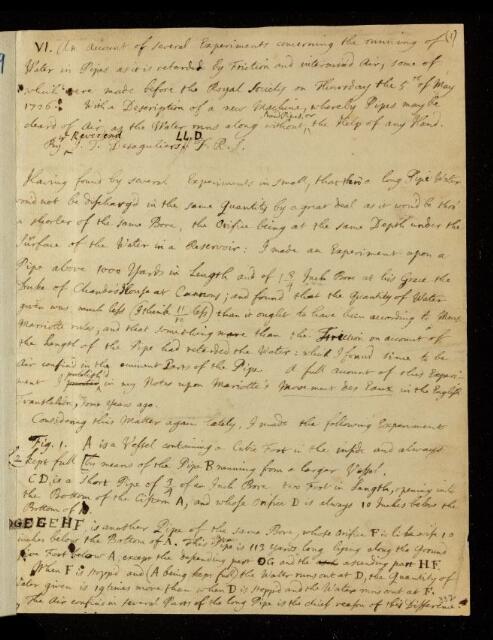 VI. An Account of several Experiments concerning the running of (1)
Water in Pipes as it is retarded by Friction and intermixed Air, some of
which were made before the Royal Society on Thursday the 5th of May
1726. With a Description of a new Machine, whereby Pipes may be
clear'd of Air, as the Water runs along without the Help of any Hand.
By Reverend J. T. Desaguliers LL.D. F. R. S.
Having found by several Experiments in small, that thro' a long Pipe Water
wou'd not be discharg'd in the same Quantity by a great deal as it wou'd be thro'
a shorter of the same Bore, the Orifice being at the same Depth under the
Surface of the Water in a Reservoir: I made an Experiment upon a
Pipe above 1000 Yards in Length and of Inch Bore at his Grace the
Duke of Chandos House at Cannons; and found that the Quantity of Water
given was much less (I think less) than it ought to have been according to Mons.
Mariotte rules; and that something more than the Friction on account of
the Length of the Pipe had retarded the Water: which I found since to be
Air confin'd in the eminent Parts of the Pipe. A full Account of this Experi-
ment I publish'd in my Notes upon Mariotte's Mouvement des Eaux in the English
Translation, some Years ago.
Considering this Matter again lately, I made the following Experiment
Fig. 1. A is a Vessel containing a Cubic Foot in the inside and always
kept full by means of the Pipe B running from a larger Vessel.
CD is a short Pipe of 3/4 of an Inch Bore two Foot in Length, opening into
the Bottom of the Cistern A, and whose Orifice D is always 10 Inches below the
Bottom of
EGEHF is another Pipe of the same Bore, whose Orifice F is likewise 10
inches below the Bottom of A. This Pipe is 113 Yards long lying along the Ground
Foot below A, except the descending part OG and the ascending part HF.
When F is stopp'd and (A being kept full) the Water runs out at D, the Quantity of
Water given is 19 times more than when D is stopp'd and the Water runs out at F.
The Air confin'd in several Parts of the long Pipe is the chief reason of this Difference.